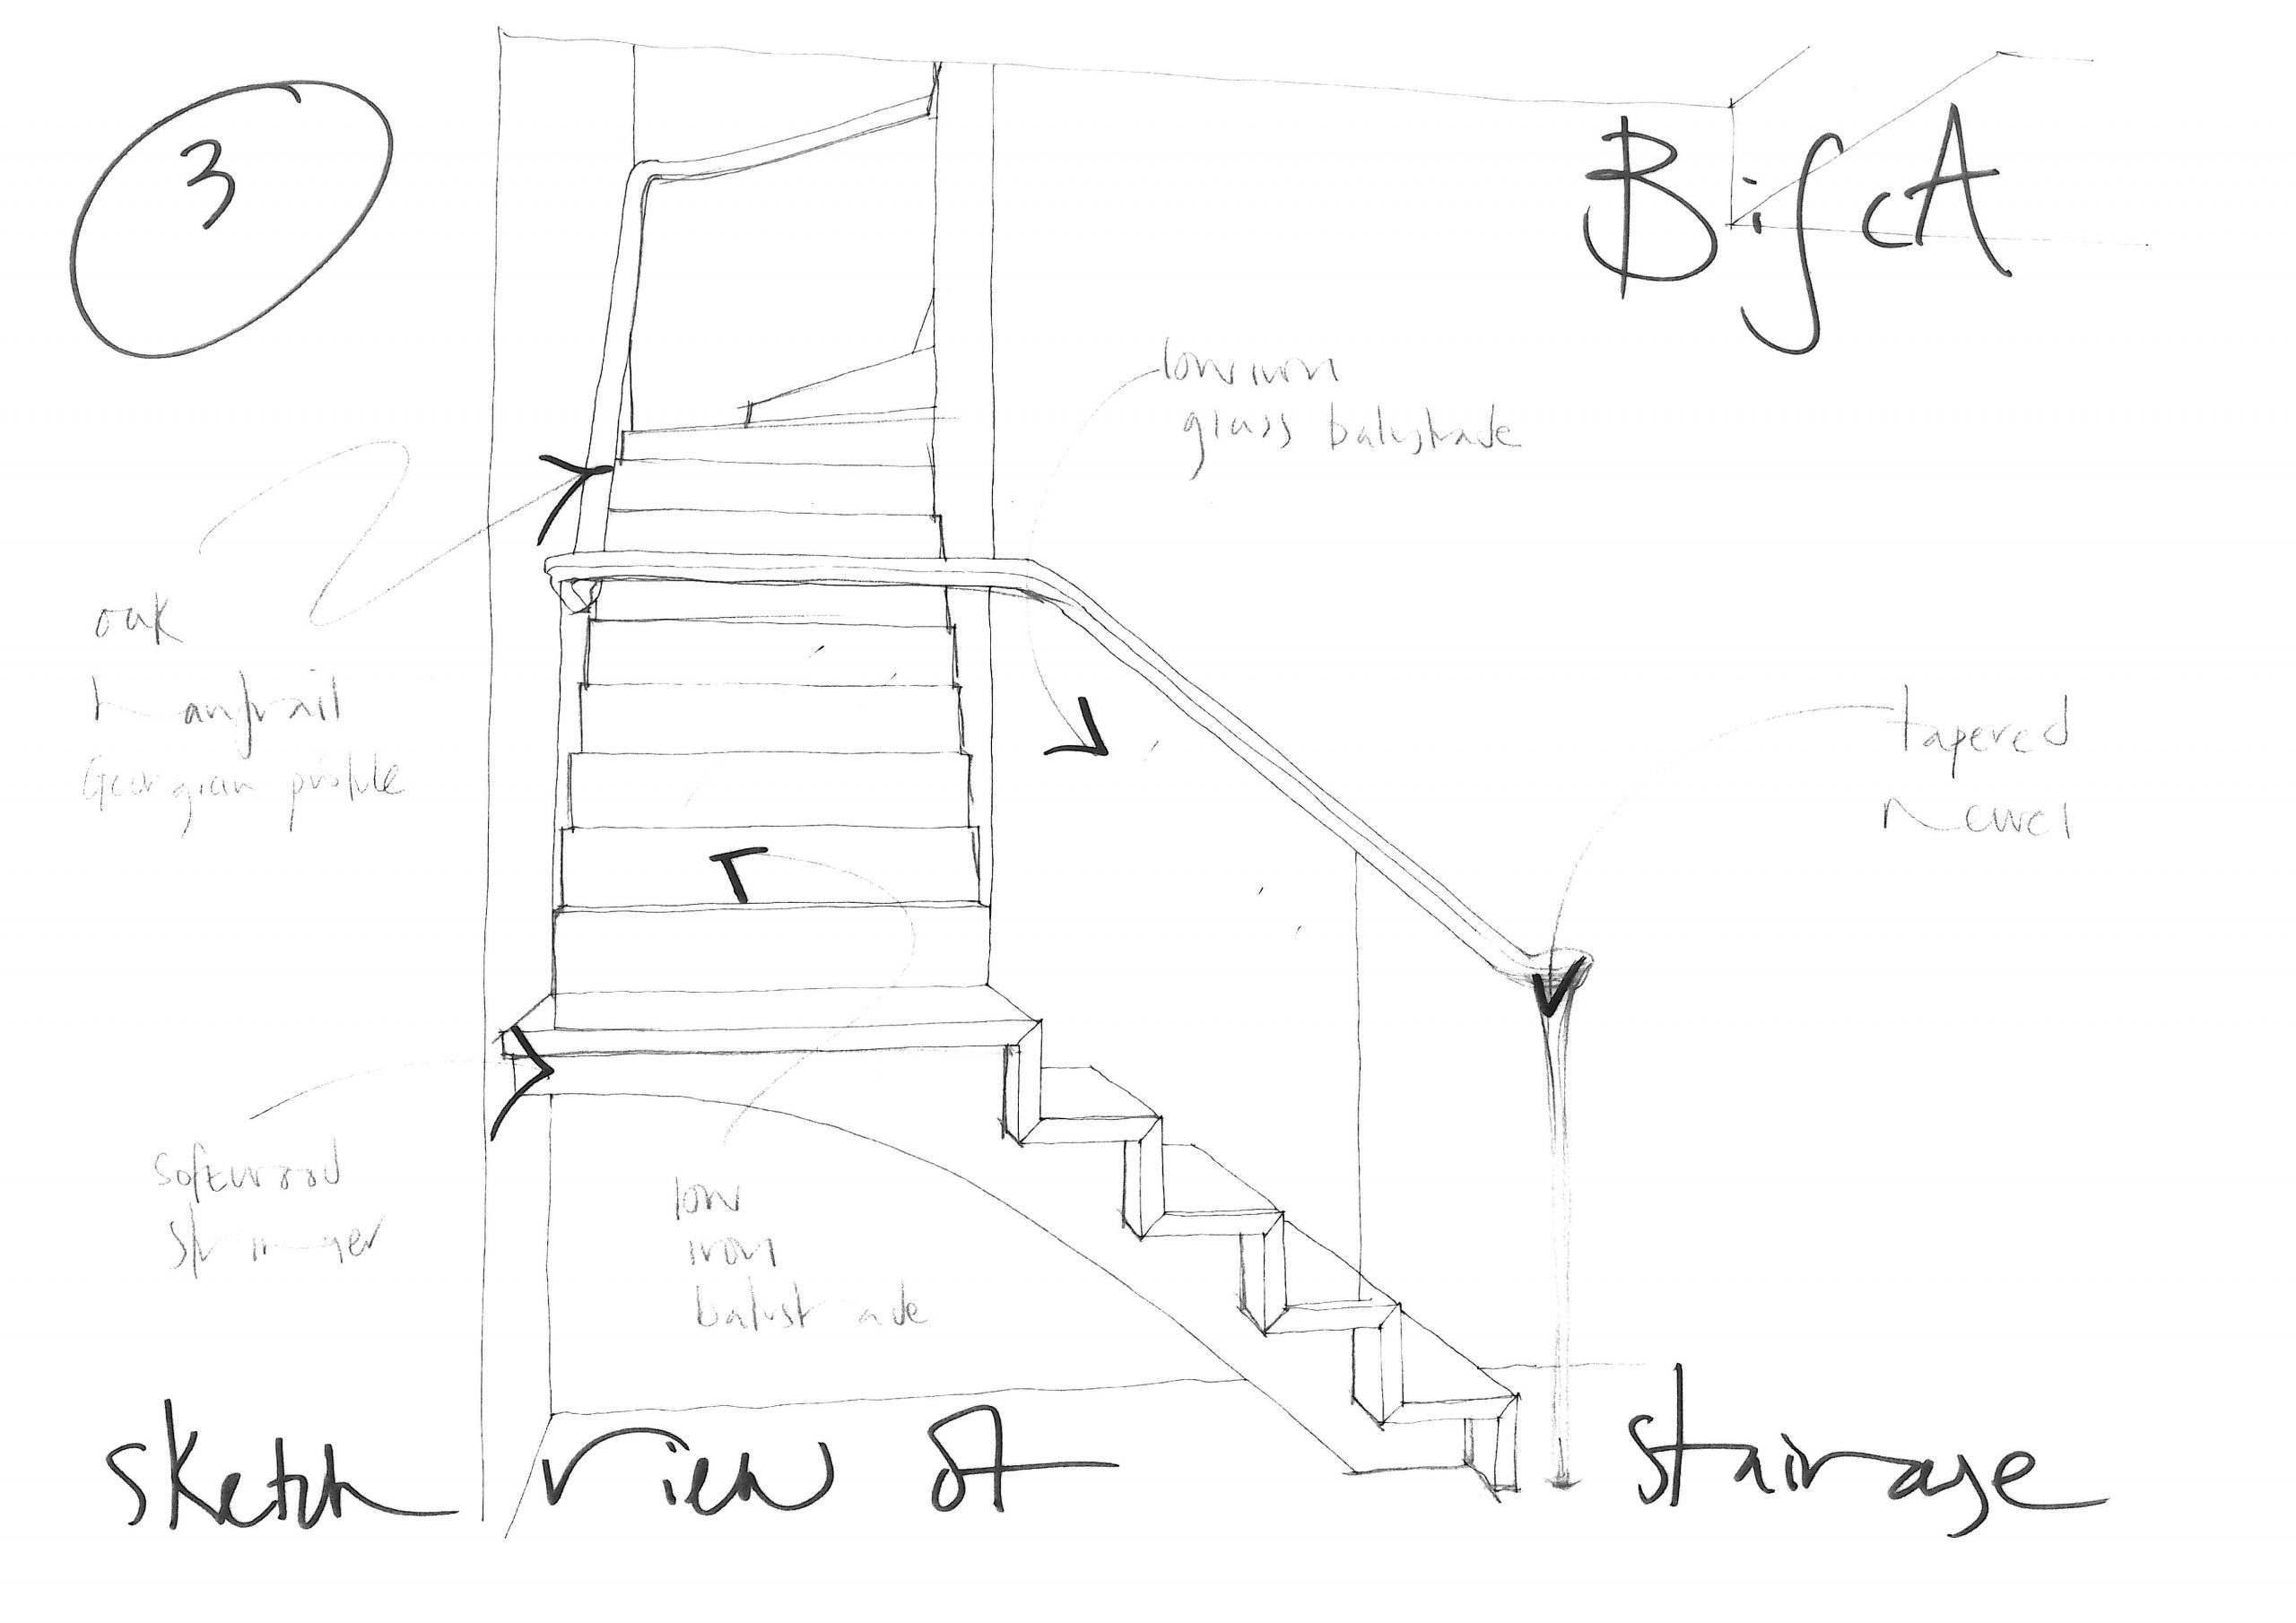 3
low iron
glass balustrade
oak
handrail
Georgian profile
tapered
Newel
softwood
stringer
low
iron
balustrade
sketch view of staircase